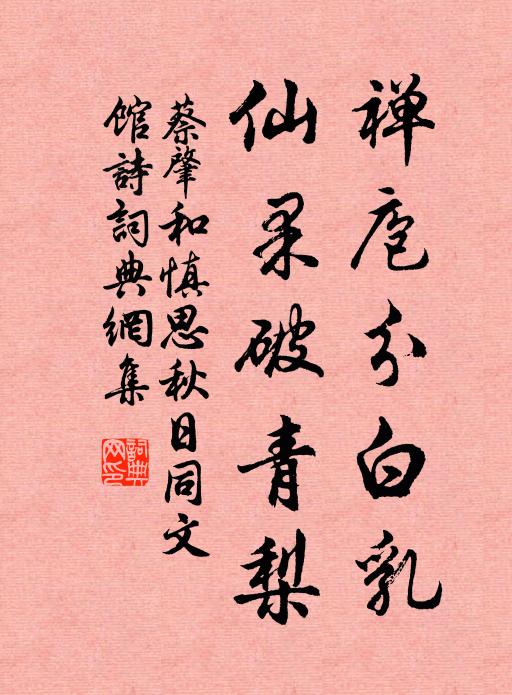 禅庖分白乳
仙果破青梨
蔡肇和慎思秋日同文
馆詩詞典網集
詞典
网印